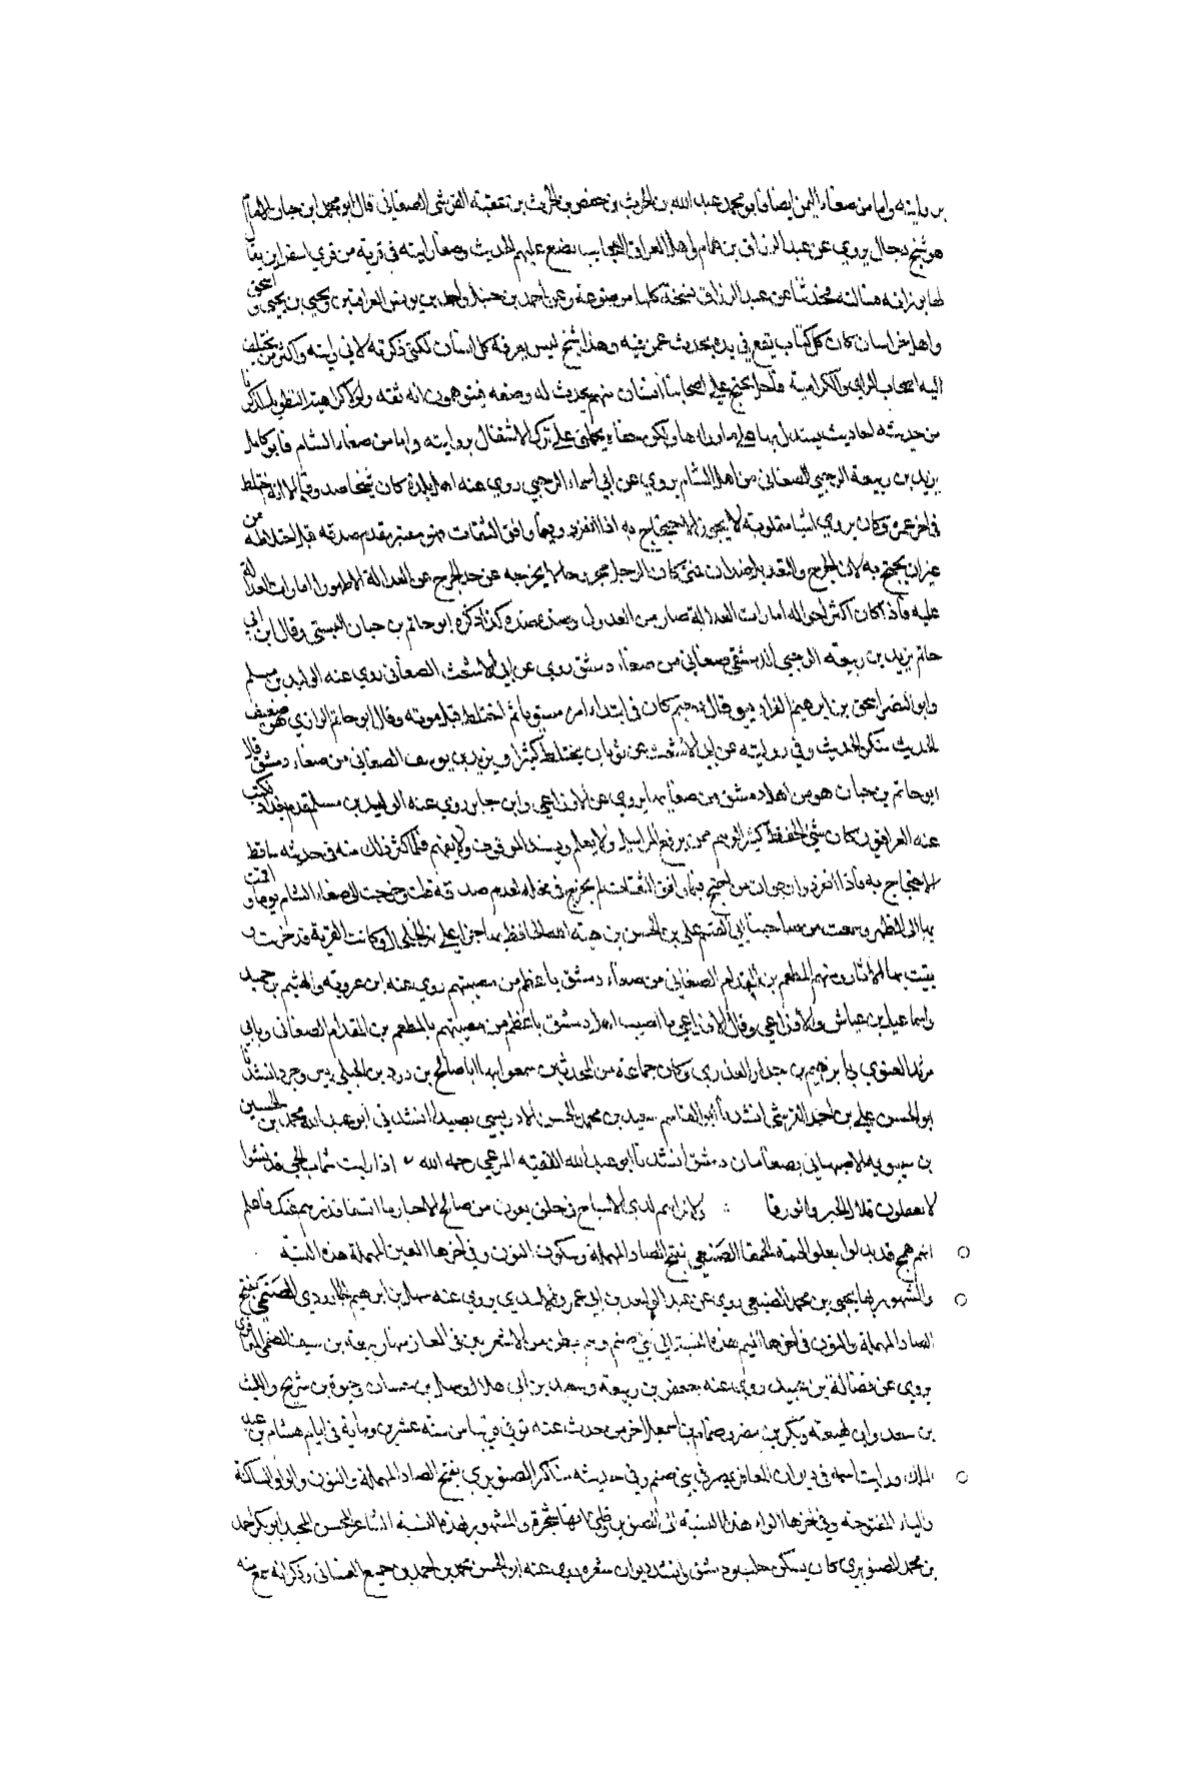 بن روايته واما من صنعاء اليمن ايضا فابو محمد عبد الله بن الحرث بن حفص بن الحرث بن عقبة القرشي الصنعاني قال ابو محمد ابن حبان الامام
هو شيخ دجال يروي عن عبد الرزاق بن همام واهل العراق العجايب يضع عليهم الحديث وضعا رايته في قرية من قري اسفراين يقا
لها بوزانه فسالته فحدثنا عن عبد الرزاق بنسخة كلها موضوعة وعن احمد بن حنبل واحمد بن يونس العراقيين ويحيي بن يحيي و اسحق
واهل خراسان كان كل كتاب يقع في يده يحدث عمن فيه وهذا شيخ ليس يعرفه كل انسان لكني ذكرته لاني رايته واكثر من يختلف
اليه اصحاب الراي والكرامية فلعل يحتج علي اصحابنا انسان منهم بحديث له وصفه فيتوهمون انه ثقة ولولا كراهية التطويل لذكرنا
من حديثه احاديث يستدل بها علي ما وراها ولكن يحملني علي ترك الاشتغال بروايته واما من صنعاء الشام فابو كامل
يزيد بن ربيعة الرحبي الصنعاني من اهل الشام يروي عن ابي اسماء الرحبي روي عنه اهل بلده كان شيخا صدوقا الا انه اختلط
في اخر عمره وكان يروي اشيا مقلوبة لا يجوز الاحتجاج به اذا انفرد وفيما وافق الثقات فهو معتبر بقدم صدقه قبل اختلاطه من
غير ان يحتج به لان الجرح والتعديل ضدان متي كان الرجل مجروحا لا يخرجه عن حد الجرح عن العدالة الا ظهور امارات العدالة
عليه فاذا كان اكثر احواله امارات العدالة صار من العدول وضده كذا ذكره ابو حاتم بن حبان البستي وقال ابن ابي
حاتم يزيد بن ربيعة الرحبي الدمشقي صنعاني من صنعاء دمشق روي عن ابي الاشعث الصنعاني روي عنه الوليد بن مسلم
وابو النضر اسحق بن ابرهيم الفراديسي وقال دحيم كان في ابتداء امره مستويا ثم اختلط قبل موته وقال ابو حاتم الرازي هو ضعيف
الحديث منكر الحديث وفي روايته عن ابي الاشعث عن ثوبان تخليط كثير ويزيد بن يوسف الصنعاني من صنعاء دمشق قال
ابو حاتم بن حبان هو من اهل دمشق من صنعا بها يروي عن الاوزاعي وابن جابر روي عنه الوليد بن مسلم قدم بغداد فكتب
عنه العراقيون كان سيئ الحفظ كثير الوهم ممن يرفع المراسيل ولا يعلم ويسند الموقوف ولا يفهم فلما كثر ذلك منه في حديثه ساقط
الاحتجاج به فاذا انفرد وارجو ان من احتج فيما وافق الثقات لم يجرح في فعله لقدم صدقه قلت وخرجت الي صنعاء الشام يوما و اقمت
بها الي الظهر وسمعت من صاحبنا ابي القسم علي بن الحسن بن هبة الله الحافظ بها وكانت القرية قد خربت و
بقيت بها الاثار ومنهم المطعم بن المقدام الصنعاني من صنعاء دمشق روي عنه ابن عروبة والهيثم بن حميد
واسماعيل بن عياش والاوزاعي وقال الاوزاعي ما اصيب اهل دمشق باعظم من مصيبتهم بالمطعم بن المقدام الصنعاني وبابي
مرثد الغنوي وبابرهيم بن جدار العذري وكان جماعة من المحدثين سمعوا بها انشدنا
ابو الحسن علي بن احمد القرشي انشدنا ابو القاسم سعيد بن محمد بن الحسن انشدني ابو عبد الله محمد بن الحسين
بن سيبويه الاصبهاني بصنعا من دمشق انشدنا ابو عبد الله الفقيه رحمه الله اذا رايت شباب الحي قد نشوا
لا يحملون قلال الحبر والورقا ولا تراهم لدي الاشياخ في حلق يعون من صالح الاخبار ما اتسقا فذرهم عنك فاعلم
انهم همج قد بدلوا بعلو الهمة الحمقا الصنعي بفتح الصاد المهملة وسكون النون وفي اخرها العين المهملة هذه النسبة
والمشهور بها يحيي بن محمد الصنعي روي عن عبد الواحد بن ابي عمرو الاسدي يروي عنه سهل بن ابرهيم الجارودي الصنمي بفتح
الصاد المهملة والنون في اخرها الميم هذه النسبة الي بني صنم وهم بطن من الاشعريين في المعافر منها ربيعة بن سيف الصنمي المعافري
يروي عن فضالة بن عبيد روي عنه جعفر بن ربيعة وسعيد بن ابي هلال وحيوة بن شريح والليث
بن سعد وابن لهيعة وبكر بن مضر وضمام بن اسمعيل اخر من حدث عنه توفي قريبا من سنة عشرين ومايه في ايام هشام بن عبد
الملك ورايت اسمه في ديوان المعافر بمصر في بني صنم وفي حديثه مناكير الصنوبري بفتح الصاد المهملة والنون والواو الساكنة
والباء المفتوحة وفي اخرها الراء هذه النسبة الي الصنوبر وظني انها شجرة والمشهور بهذه النسبة الشاعر المحسن المجيد ابو بكر احمد
بن محمد الصنوبري كان يسكن حلب ودمشق وانشد ديوان شعره روي عنه ابو الحسن محمد بن احمد بن جميع الغساني وذكر انه سمع منه